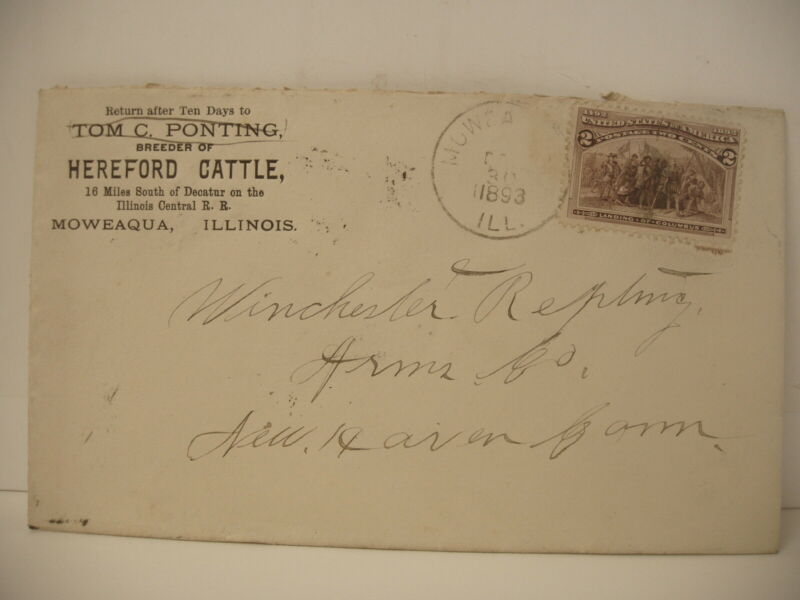 Return after Ten Days to
TOM C. PONTING,
BREEDER OF
HEREFORD CATTLE,
16 Miles South of Decatur on the
Illinois Central R. R.
MOWEAQUA, ILLINOIS.
MOWEA
1893
ILL.
1492 1892
UNITED STATES OF AMERICA
POSTAGE TWO CENTS
2 2
LANDING OF COLUMBUS
Winchester Repting.
Arms Co.
New. Haven Conn.